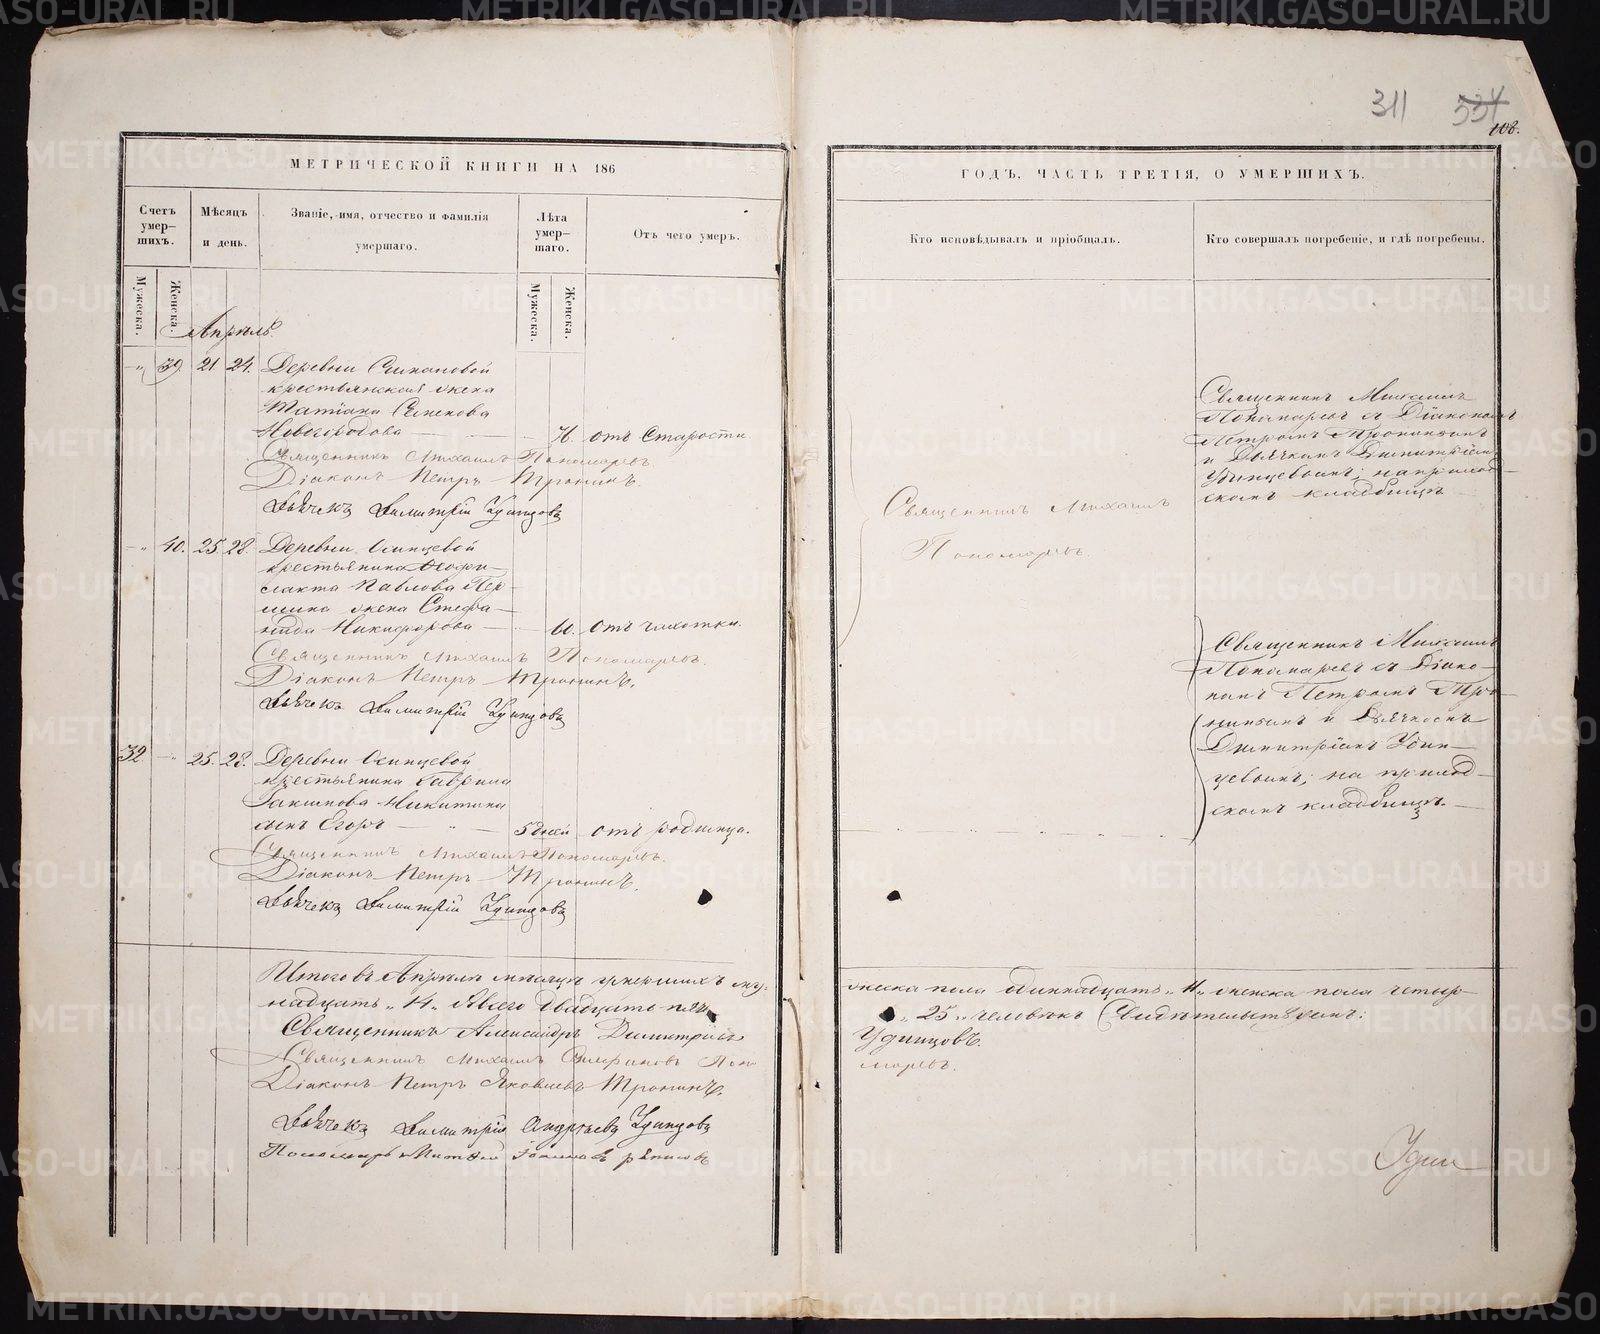 311 534
108.
МЕТРИЧЕСКОЙ КНИГИ НА 186
ГОДЪ, ЧАСТЬ ТРЕТІЯ, О УМЕРШИХЪ.
Счетъ умер-
шихъ.
Мѣсяцъ
и день.
Званіе, имя, отчество и фамилія
умершаго.
Лѣта
умер-
шаго.
Отъ чего умеръ.
Кто исповѣдывалъ и пріобщалъ.
Кто совершалъ погребеніе, и гдѣ погребены.
Мужеска.
Женска.
Мужеска.
Женска.
Апрѣль
39. 21 24. Деревни
крестьянская жена
Татіана
Новогородова 76. отъ Старости.
Священникъ Михаилъ Пономаревъ.
Діаконъ Петръ Тронинъ.
Дьячекъ Димитрій Удинцовъ
Священникъ Михаилъ
Пономаревъ.
Священникъ Михаилъ
Пономаревъ съ Діакономъ
Петромъ Тронинымъ
и Дьячкомъ Димитріемъ
Удинцовымъ; на приход-
скомъ кладбищѣ
40. 25 28. Деревни Осинцевой
крестьянина Феофи-
лакта Павлова Пер-
шина жена Стефа-
нида Никифорова 60. Отъ чахотки.
Священникъ Михаилъ Пономаревъ.
Діаконъ Петръ Тронинъ.
Дьячекъ Димитрій Удинцовъ
Священникъ Михаилъ
Пономаревъ съ Діако-
номъ Петромъ Тро-
нинымъ и Дьячкомъ
Димитріемъ Удин-
цовымъ; на приход-
скомъ кладбищѣ.
32. 25. 28. Деревни Осинцевой
крестьянина Гавріила
Никитина
сынъ Егоръ 5 дней отъ родимца.
Священникъ Михаилъ Пономаревъ.
Діаконъ Петръ Тронинъ.
Дьячекъ Димитрій Удинцовъ
Итого въ Апрѣлѣ мѣсяцѣ умершихъ му-
жеска пола одиннадцать „11„ женска пола четыр-
надцать „14„ обоего двадцать пять
„25„ человѣкъ Свидѣтельствуемъ:
Священникъ Александръ Димитріевъ
Удинцовъ.
Священникъ Михаилъ Поно
маревъ.
Діаконъ Петръ Яковлевъ Тронинъ.
Дьячекъ Димитрій Андреевъ Удинцовъ
Пономарь
Удин
METRIKI.GASO-URAL.RU